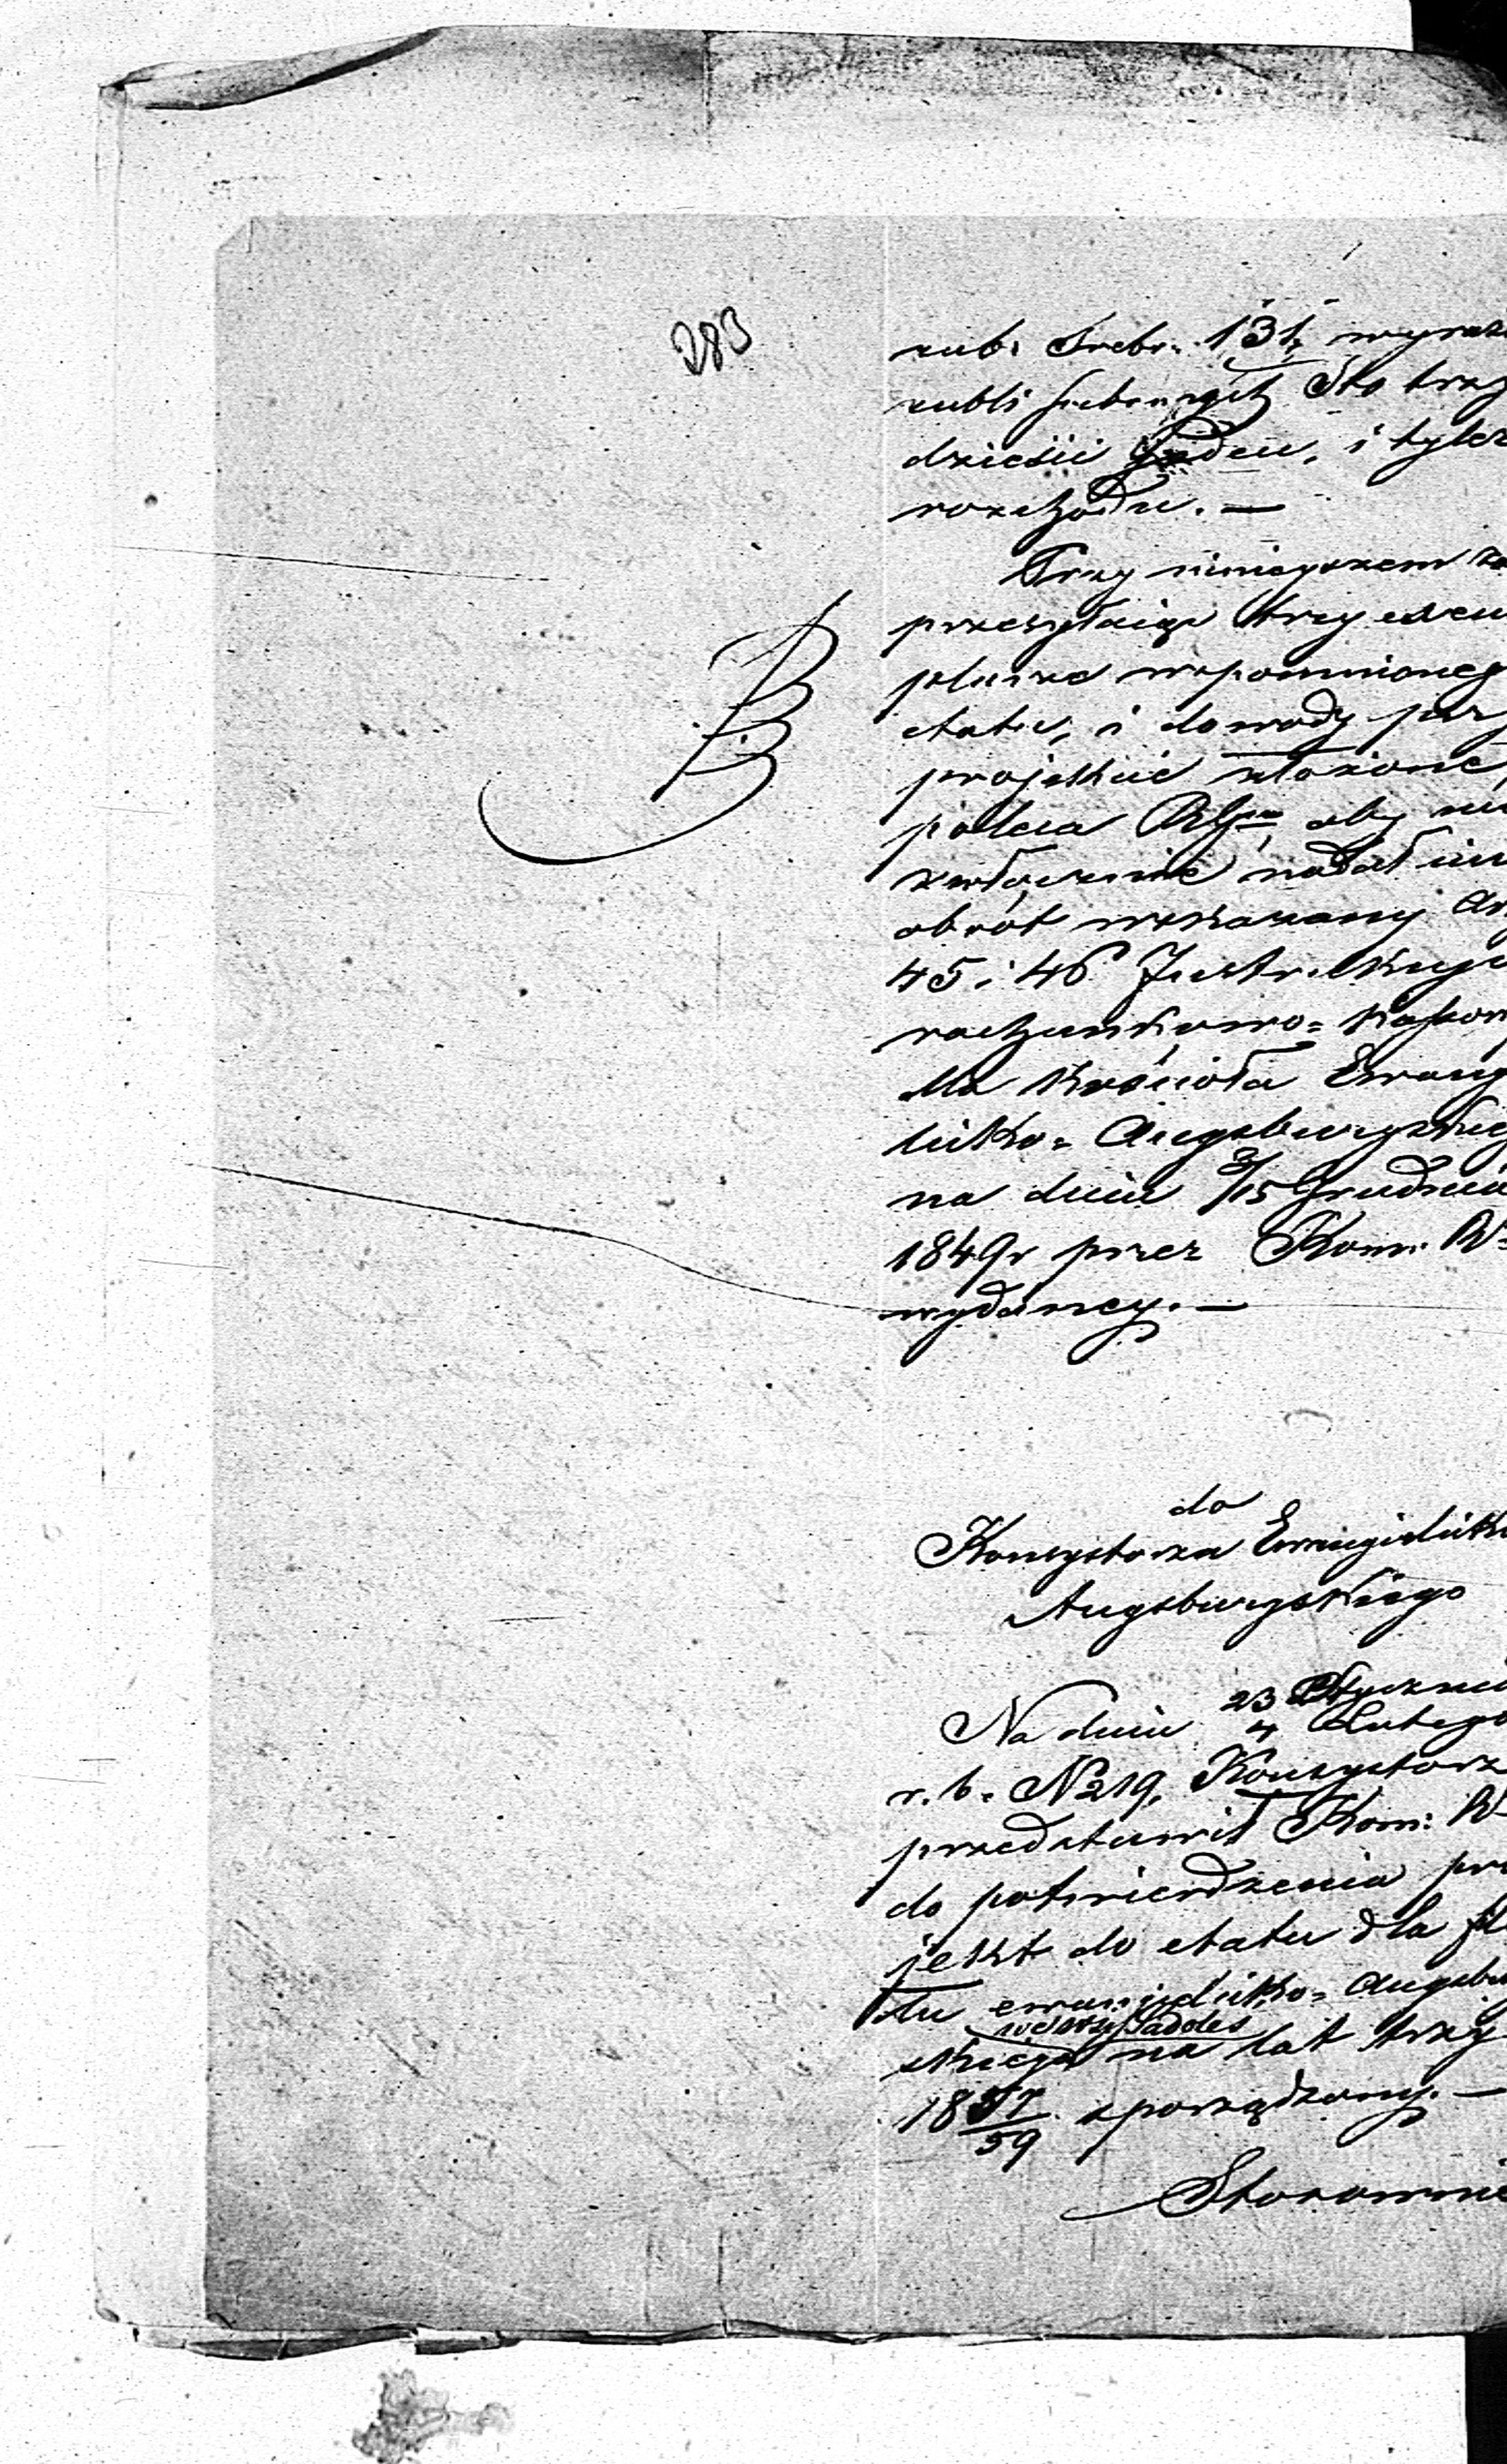 283
rub. Srebr. 131, wyraź
rubli srebrnych Sto trzy
dzieści jeden, i tyleż
rozchodu. —
Przy niniejszem za
przesyłając trzy exem
plarze wspomnioneg
etatu, i dowody przy
projekcie złożone,
poleca aby nie
zwłócznie nadał im
obrót wskazany Ar
45 i 46 Instrukcyi
rachunkowo= kassow
dla Kościoła Ewang
licko= Augsburgskieg
na dniu 3/15 Grudnia
1849r przez Kom: R
wydaney. —
do
Konsystorza Ewangielicko
Augsburgskiego
Na dniu 23 Stycznia
4 Lutego
r. b. N 219, Konsystorz
przedstawił Kom: R
do potwierdzenia pro
jekt do etatu dla fil
łu ewangielicko= Augsbu
we wsi Sadoles
skiego na lat trzy
18 57/59 sporządzony. —
Stosownie